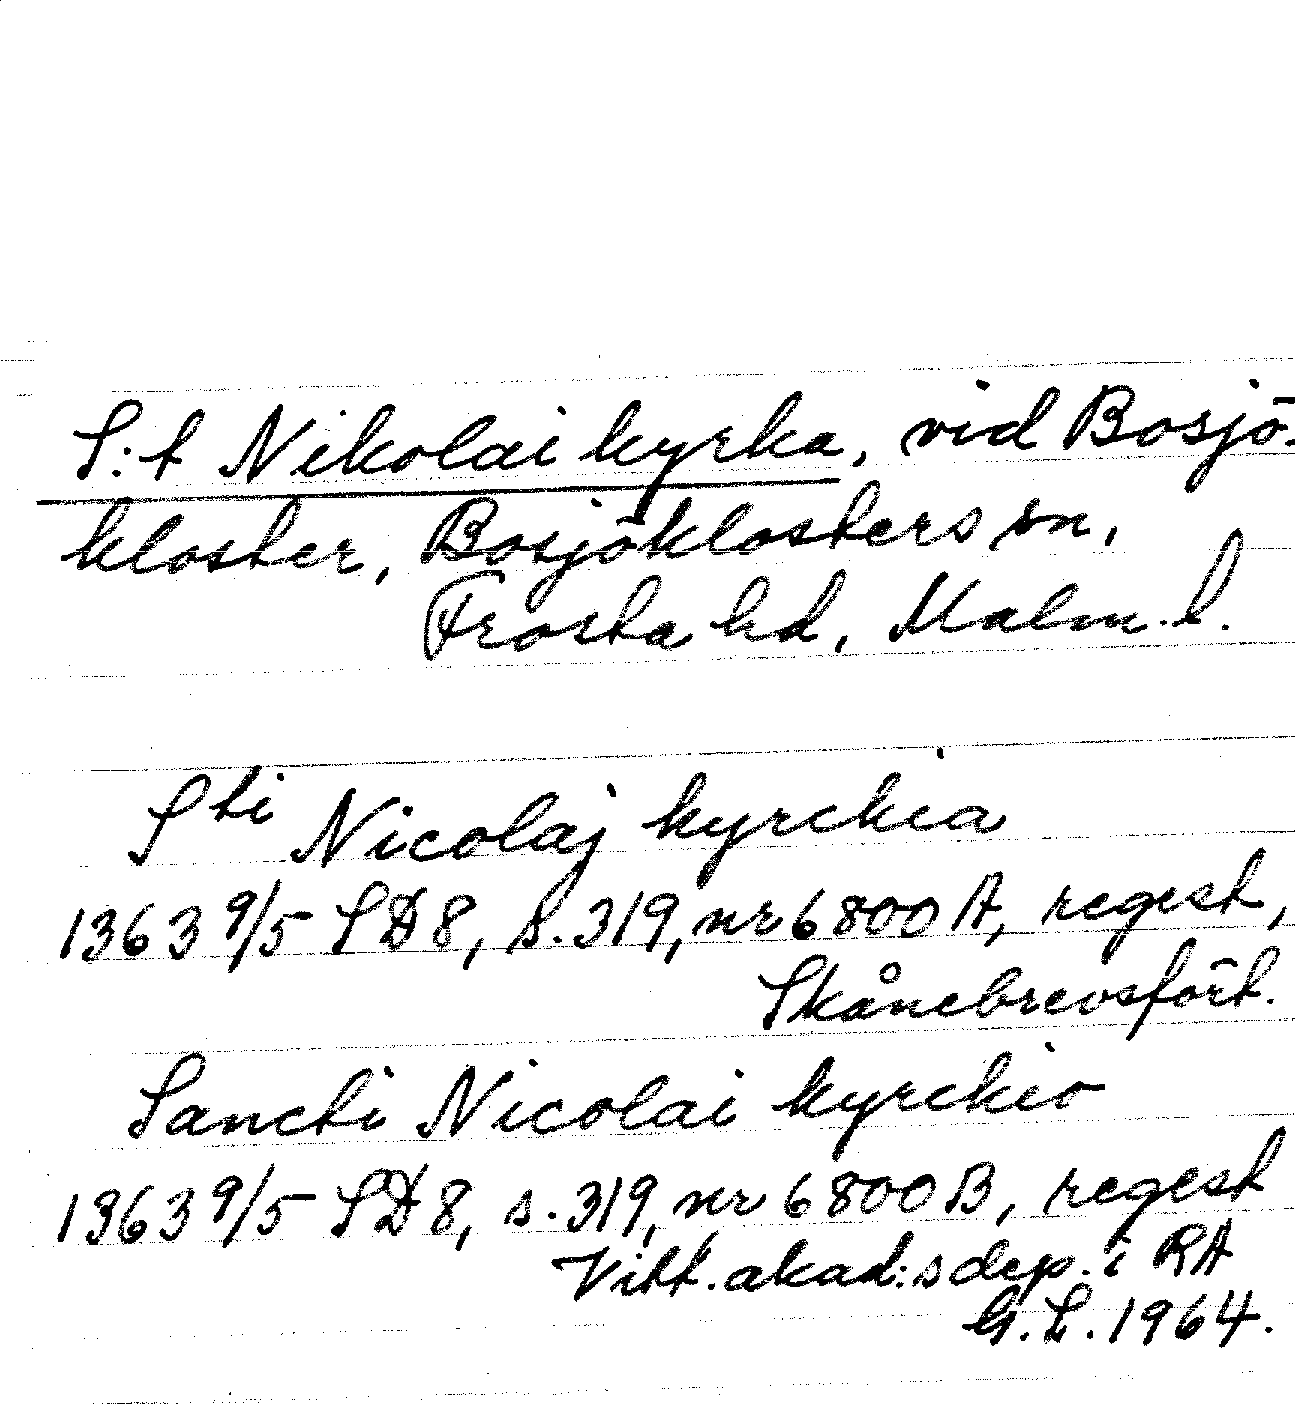 S:t Nikolai kyrka, vid Bosjö-
kloster, Bosjöklosters sn,
Frosta hd, Malm. l.
Sti Nicolaj kyrchia
1363 9/5 SD 8, s. 319, nr 6800 A, regest,
Skånebrevsfört.
Sancti Nicolai kyrchio
1363 9/5 SD 8, s. 319, nr 6800 B, regest
Vitt. akad:s dep. i RA
G. L. 1964.